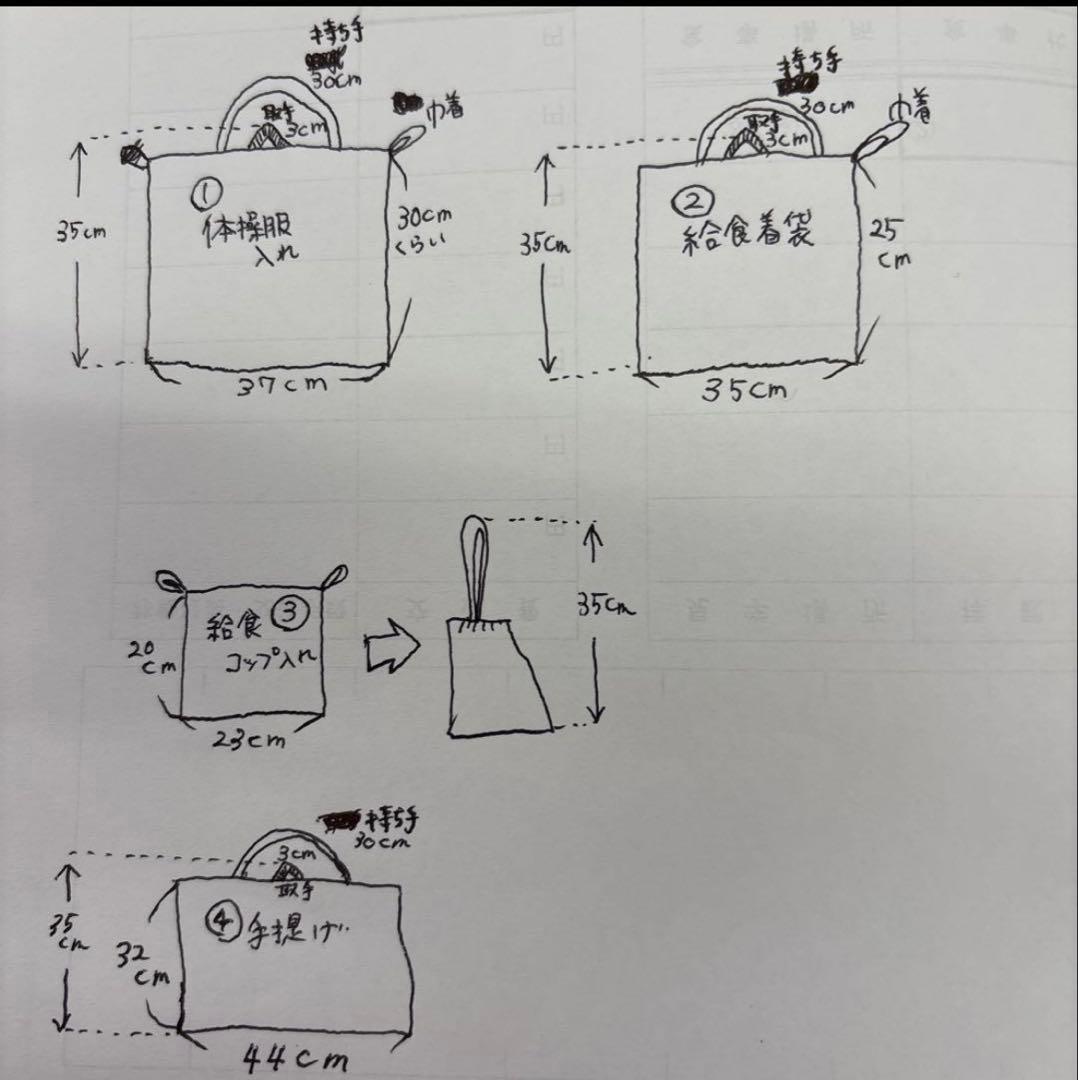 持ち手
30cm
取手
3cm
巾着
35cm
①
体操服
入れ
30cm
くらい
37cm
持ち手
30cm
取手
3cm
巾着
35cm
②
給食着袋
25
cm
35cm
給食③
コップ入れ
20
cm
23cm
35cm
持ち手
30cm
3cm
取手
35
cm
④手提げ
32
cm
44cm